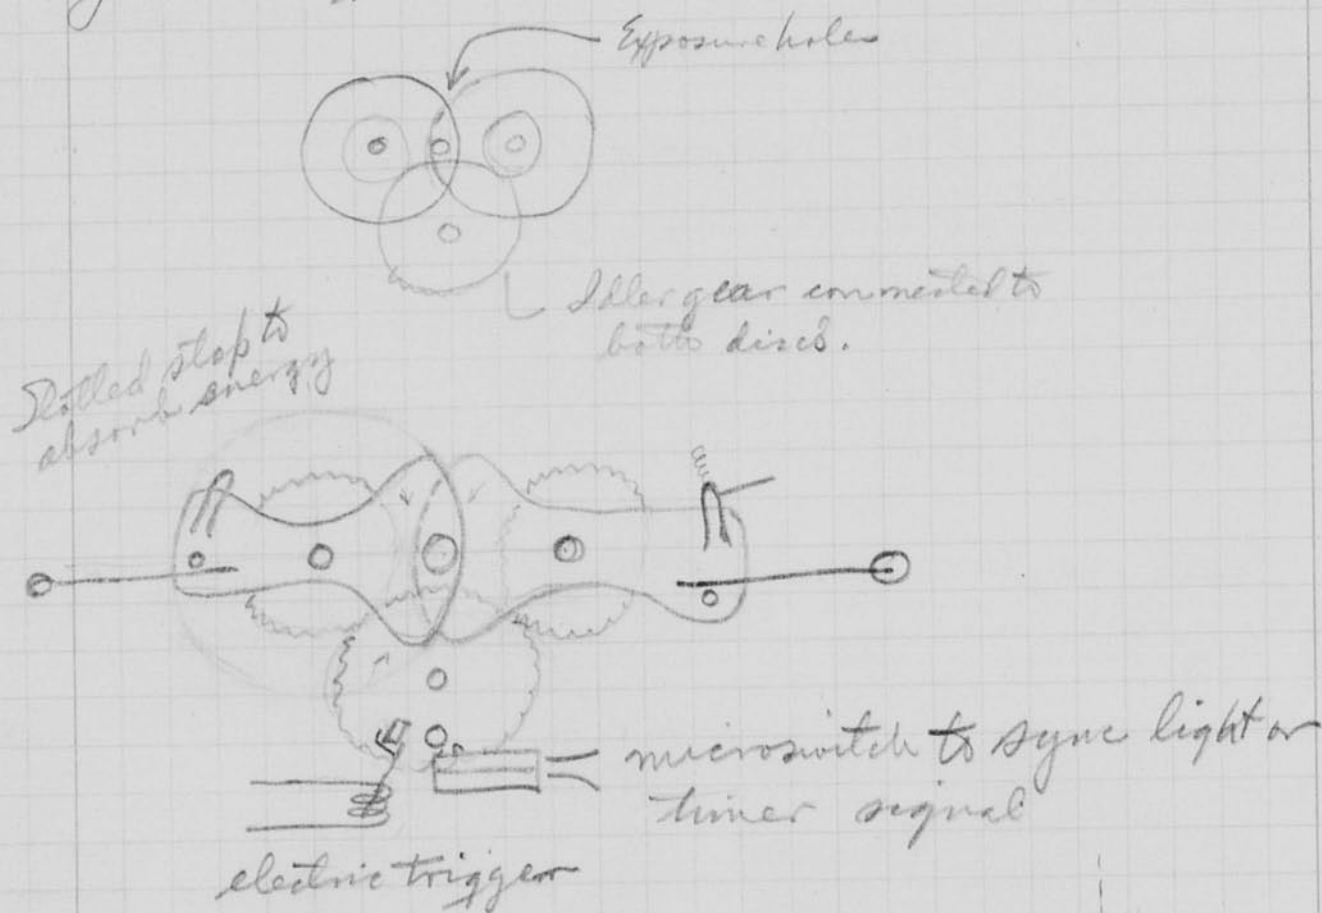 Exposure hole
Idler gear connected to
both discs.
Slotted stop to
absorb energy
microswitch to sync light or
timer signal
electric trigger